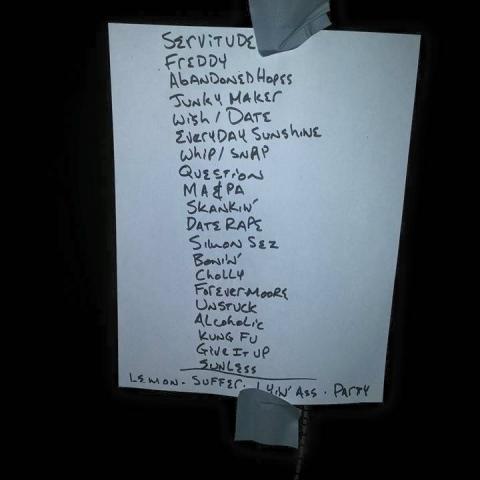 SERVITUDE
FREDDY
ABANDONED HOPES
JUNKY MAKER
WISH / DATE
EVERYDAY SUNSHINE
WHIP / SNAP
QUESTION
MA & PA
SKANKIN'
DATE RAPE
SIMON SEZ
BONIN'
CHOLLY
FOREVERMOORE
UNSTUCK
ALCOHOLIC
KUNG FU
GIVE IT UP
SUNLESS
LEMON · SUFFER · LYIN' ASS · PARTY